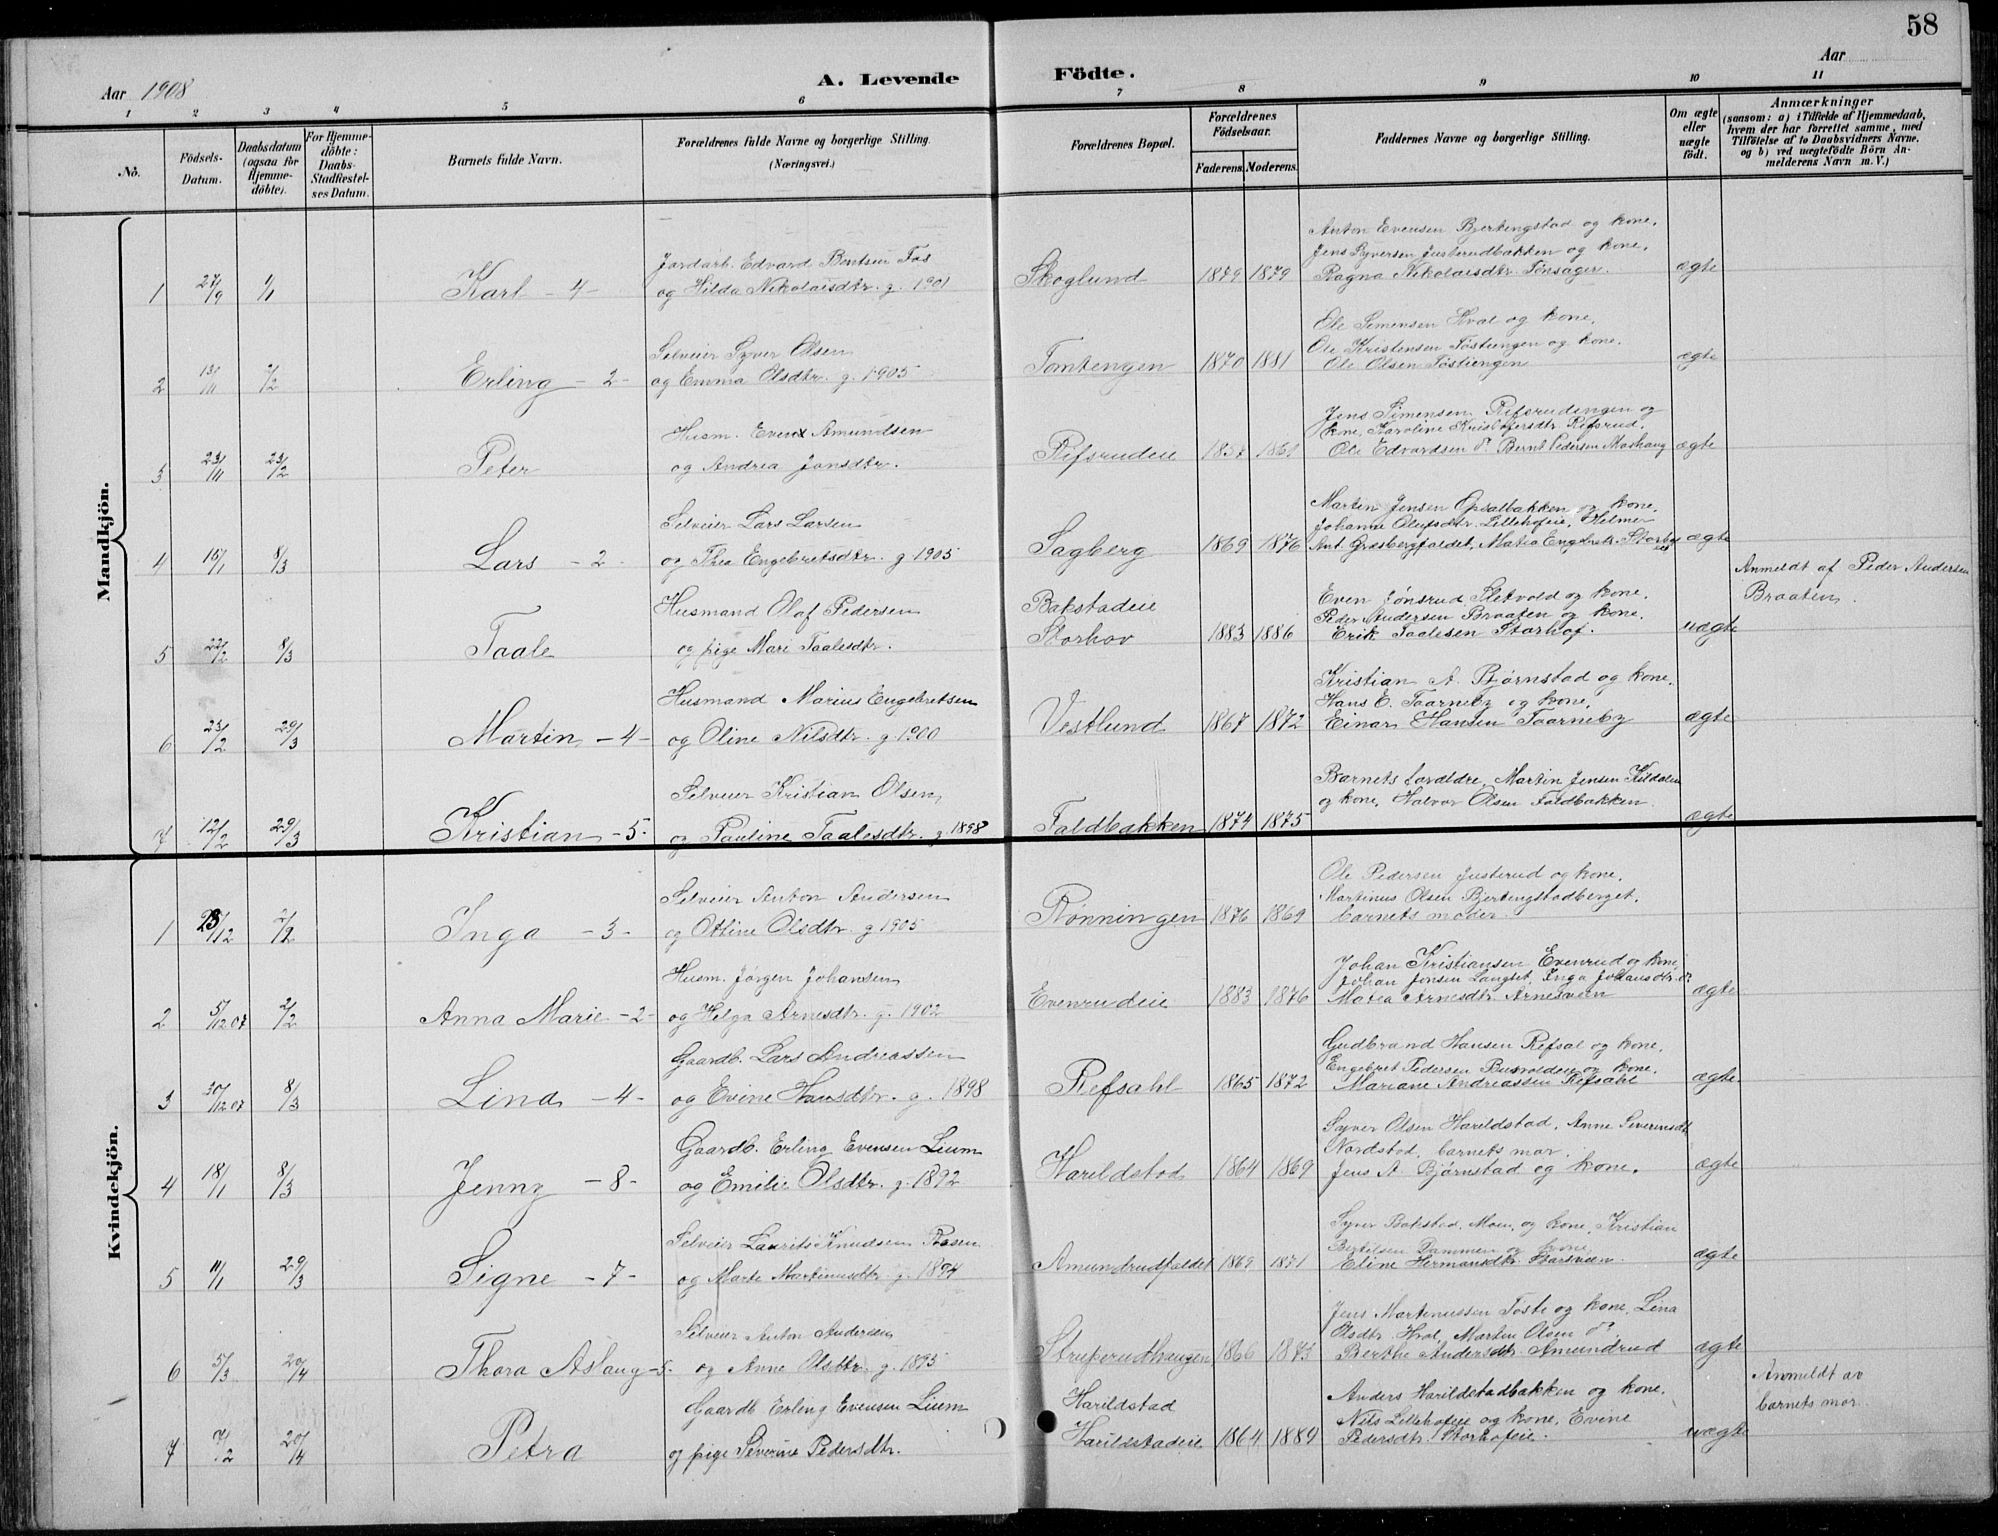 58
Aar 1908
A. Levende Födte.
Aar
1 2 3 4 5 6 7 8 9 10 11
No.
Födsels-Datum.
Daabsdatum (ogsaa for Hjemmedöbte).
For Hjemmedöbte: Daabs-Stadfæstelses Datum.
Barnets fulde Navn.
Forældrenes fulde Navne og borgerlige Stilling. (Næringsvei.)
Forældrenes Bopæl.
Forældrenes Födselsaar.
Faderens. Moderens.
Faddernes Navne og borgerlige Stilling.
Om ægte eller uægte födt.
Anmærkninger
(saasom: a) i Tilfælde af Hjemmedaab, hvem der har forrettet samme, med Tilföielse af to Daabsvidners Navne. og b) ved uægtefödte Börn Anmelderens Navn m. V.)
Mandkjön.
Anton Evensen Bjertengstad og kone,
Jordarb. Edvard Bentsen
Jens Syversen Justerudbakken og kone,
1 27/9 1/1 Karl - 4 - og Hilda Nikolaisdtr. g. 1901 Skoglund 1879 1879 Ragna Nikolaisdtr. Tønsager. ægte
Ole Simensen Hval og kone,
Selveier Syver Olsen
Ole Kristensen Tøstiengen og kone,
2 13/11 2/2 Erling - 2 - og Emma Olsdtr. g. 1905 Tomtengen 1870 1881 Ole Olsen Tøstiengen ægte
Jens Simensen Refsrudengen og
Husm. Even Amundsen
kone, Karoline Kristofersdtr. Refsrud,
3 23/11 23/2 Peter og Andrea Jonsdtr. Refsrudeie 1857 1861 Ole Edvardsen do Bernt Pedersen ægte
Martin Jensen Opsalbakken og kone,
Selveier Lars Larsen
Johanne Olufsdtr. Lillehofeie, Helmer
4 15/1 8/3 Lars - 2 - og Thea Engebretsdtr. g 1905 Sagberg 1869 1876 Ant. Græsbergfaldet, Matea Engebretsdtr. ægte
Anmeldt af Peder Andersen
Husmand Olaf Pedersen Bakstadeie Even Jønsrud Sletvold og kone, Braaten.
Peder Andersen Braaten og kone,
5 22/2 8/3 Taale og pige Mari Taalesdtr. Storhov 1883 1886 Erik Taalesen Storhof. uægte
Kristian A. Bjørnstad og kone,
Husmand Marius Engebretsen
Hans E. Taarneby og kone,
6 23/2 29/3 Martin - 4 - og Oline Nilsdtr. g. 1900 Vestlund 1867 1872 Einar Hansen Taarneby ægte
Barnets forældre, Martin Jensen Kildalen
Selveier Kristian Olsen
og kone, Halvor Olsen Faldbakken
7 12/2 29/3 Kristian - 5 - og Pauline Taalesdtr. g. 1898 Faldbakken 1874 1875 ægte
Kvindekjön.
Ole Pedersen Justerud og kone,
Selveier Anton Andersen
Martinus Olsen Bjertengstadberget,
1 23/12 2/2 Inga - 3 - og Otline Olsdtr. g 1905 Rønningen 1876 1869 barnets moder.
Johan Kristiansen Evenrud og kone,
Husm. Jørgen Johansen
Johan Jensen Langset, Inga Johansdtr. do
2 5/12 07 2/2 Anna Marie - 2 - og Helga Arnesdtr. g. 1902 Evenrudeie 1883 1876 Matea Arnesdtr. Arnesveen ægte
Gudbrand Hansen Refsal og kone,
Gaardb. Lars Andreassen
Engebret Pedersen Busvolden og kone,
3 30/12 07 8/3 Lina - 4 - og Evine Hansdtr. g. 1898 Refsahl 1865 1872 Mariane Andreassen Refsahl ægte
Syver Olsen Harildstad, Anne Severinsdtr.
Gaardb. Erling Evensen Lium
Nordstad, barnets mor.
4 18/1 8/3 Jenny - 8 - og Emilie Olsdtr. g. 1892 Harildstad 1864 1869 Jens A. Bjørnstad og kone. ægte
Syver Bakstad, Moen, og kone, Kristian
Selveier Laurits Knudsen Rosen
Bertelsen Dammen og kone,
5 11/1 29/3 Signe - 7 - og Marte Martinusdtr. g. 1894 Amundrudfaldet 1869 1871 Eline Hermansdtr. ægte
Jens Martinussen Toste og kone, Lina
Selveier Anton Andersen
Olsdtr. Hval, Martin Olsen do
6 5/3 20/4 Thora Aslaug - 5 - og Anne Olsdtr. g. 1895 Struperudhaugen 1866 1873 Berthe Andersdtr. Amundrud ægte
Anmeldt av
Gaardb. Erling Evensen Lium Harildstad Anders Harildstadbakken og kone, barnets mor.
Nils Lillehofeie og kone, Evine
7 7/2 20/4 Petra og pige Severine Pedersdtr. Harildstadeie 1864 1889 Pedersdtr. Storhofeie. uægte